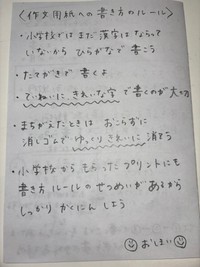 〈作文用紙への書き方のルール〉
・小学校ではまだ漢字はならって
いないから ひらがなで書こう
・たてがきで書くよ
・ていねいに きれいな字で書くのが大切
・まちがえたときは おこらずに
消しゴムで ゆっくりきれいに 消そう
・小学校から もらったプリントにも
書き方ルールの せつめいがあるから
しっかり かくにん しよう
おしまい